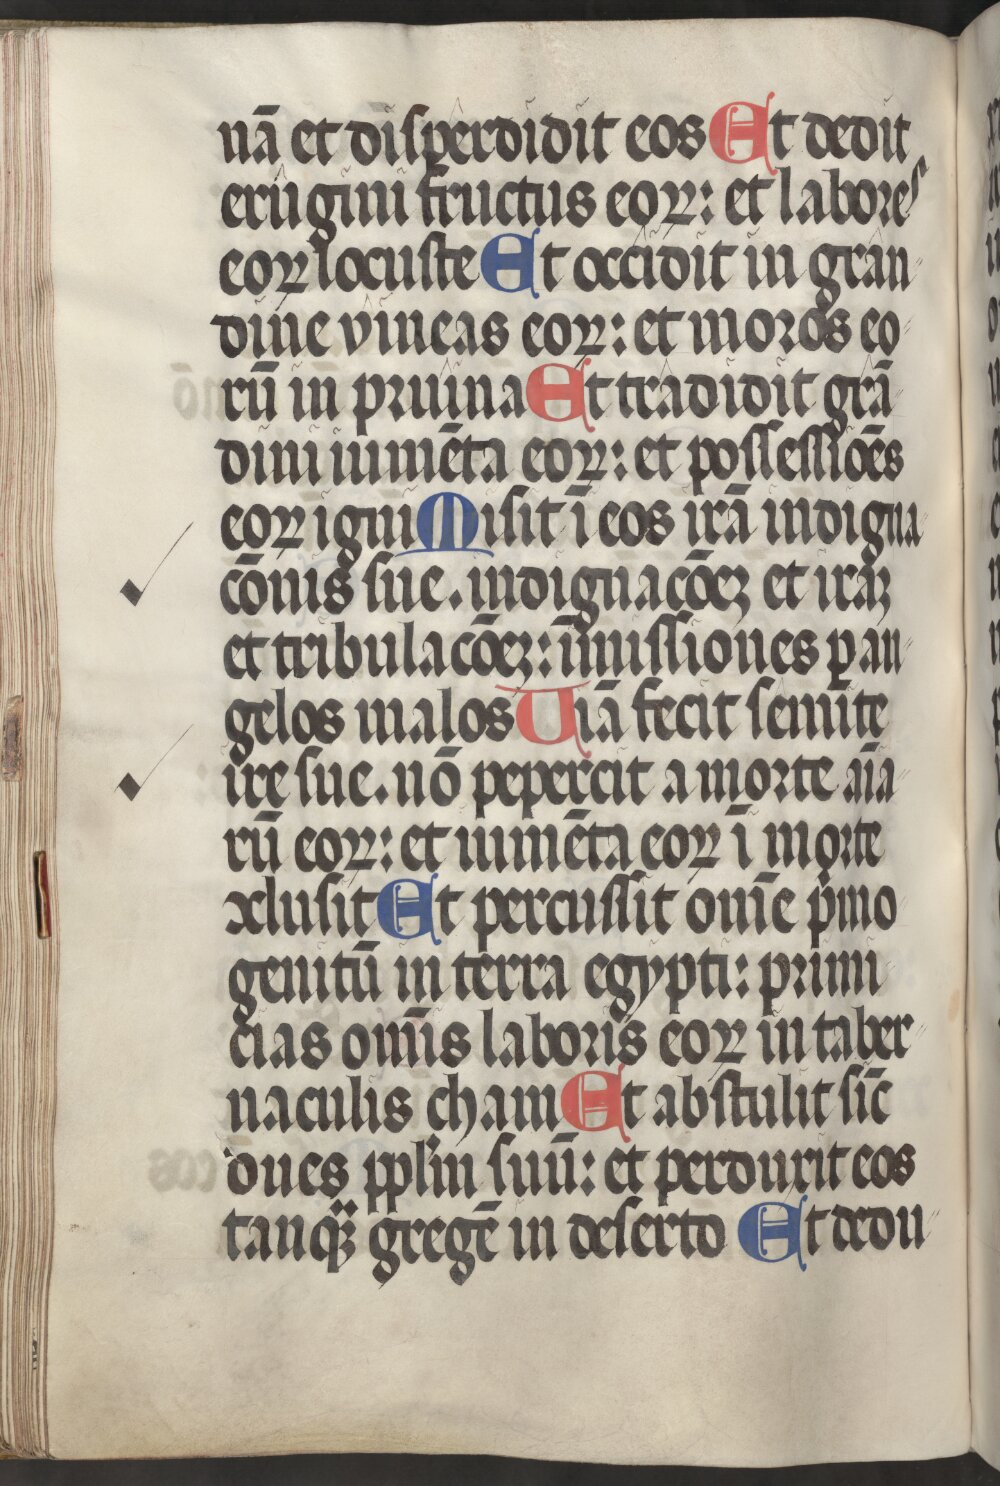 nā et disperdidit eos Et dedit
erugini fructus eoꝝ: et labores
eoꝝ locuste Et occidit in gran-
dine vineas eoꝝ: et moros eo-
rū in pruina Et tradidit grā-
dini iumēta eoꝝ: et possessiōes
eoꝝ igni Misit ī eos irā indigna-
cōnis sue. indignacōeꝫ et iraꝫ
et tribulacōeꝫ: īmissiones p an-
gelos malos Uiā fecit semite
ire sue. nō pepercit a morte aīa-
rū eoꝝ: et iumēta eoꝝ ī morte
ↄclusit Et percussit omē pⁱmo
genitū in terra egypti: primi-
cias omīs laboris eoꝝ in taber-
naculis cham Et abstulit sic̄
oues ppl'm suū: et perduxit eos
tanqꝫ gregē in deserto Et dedu-